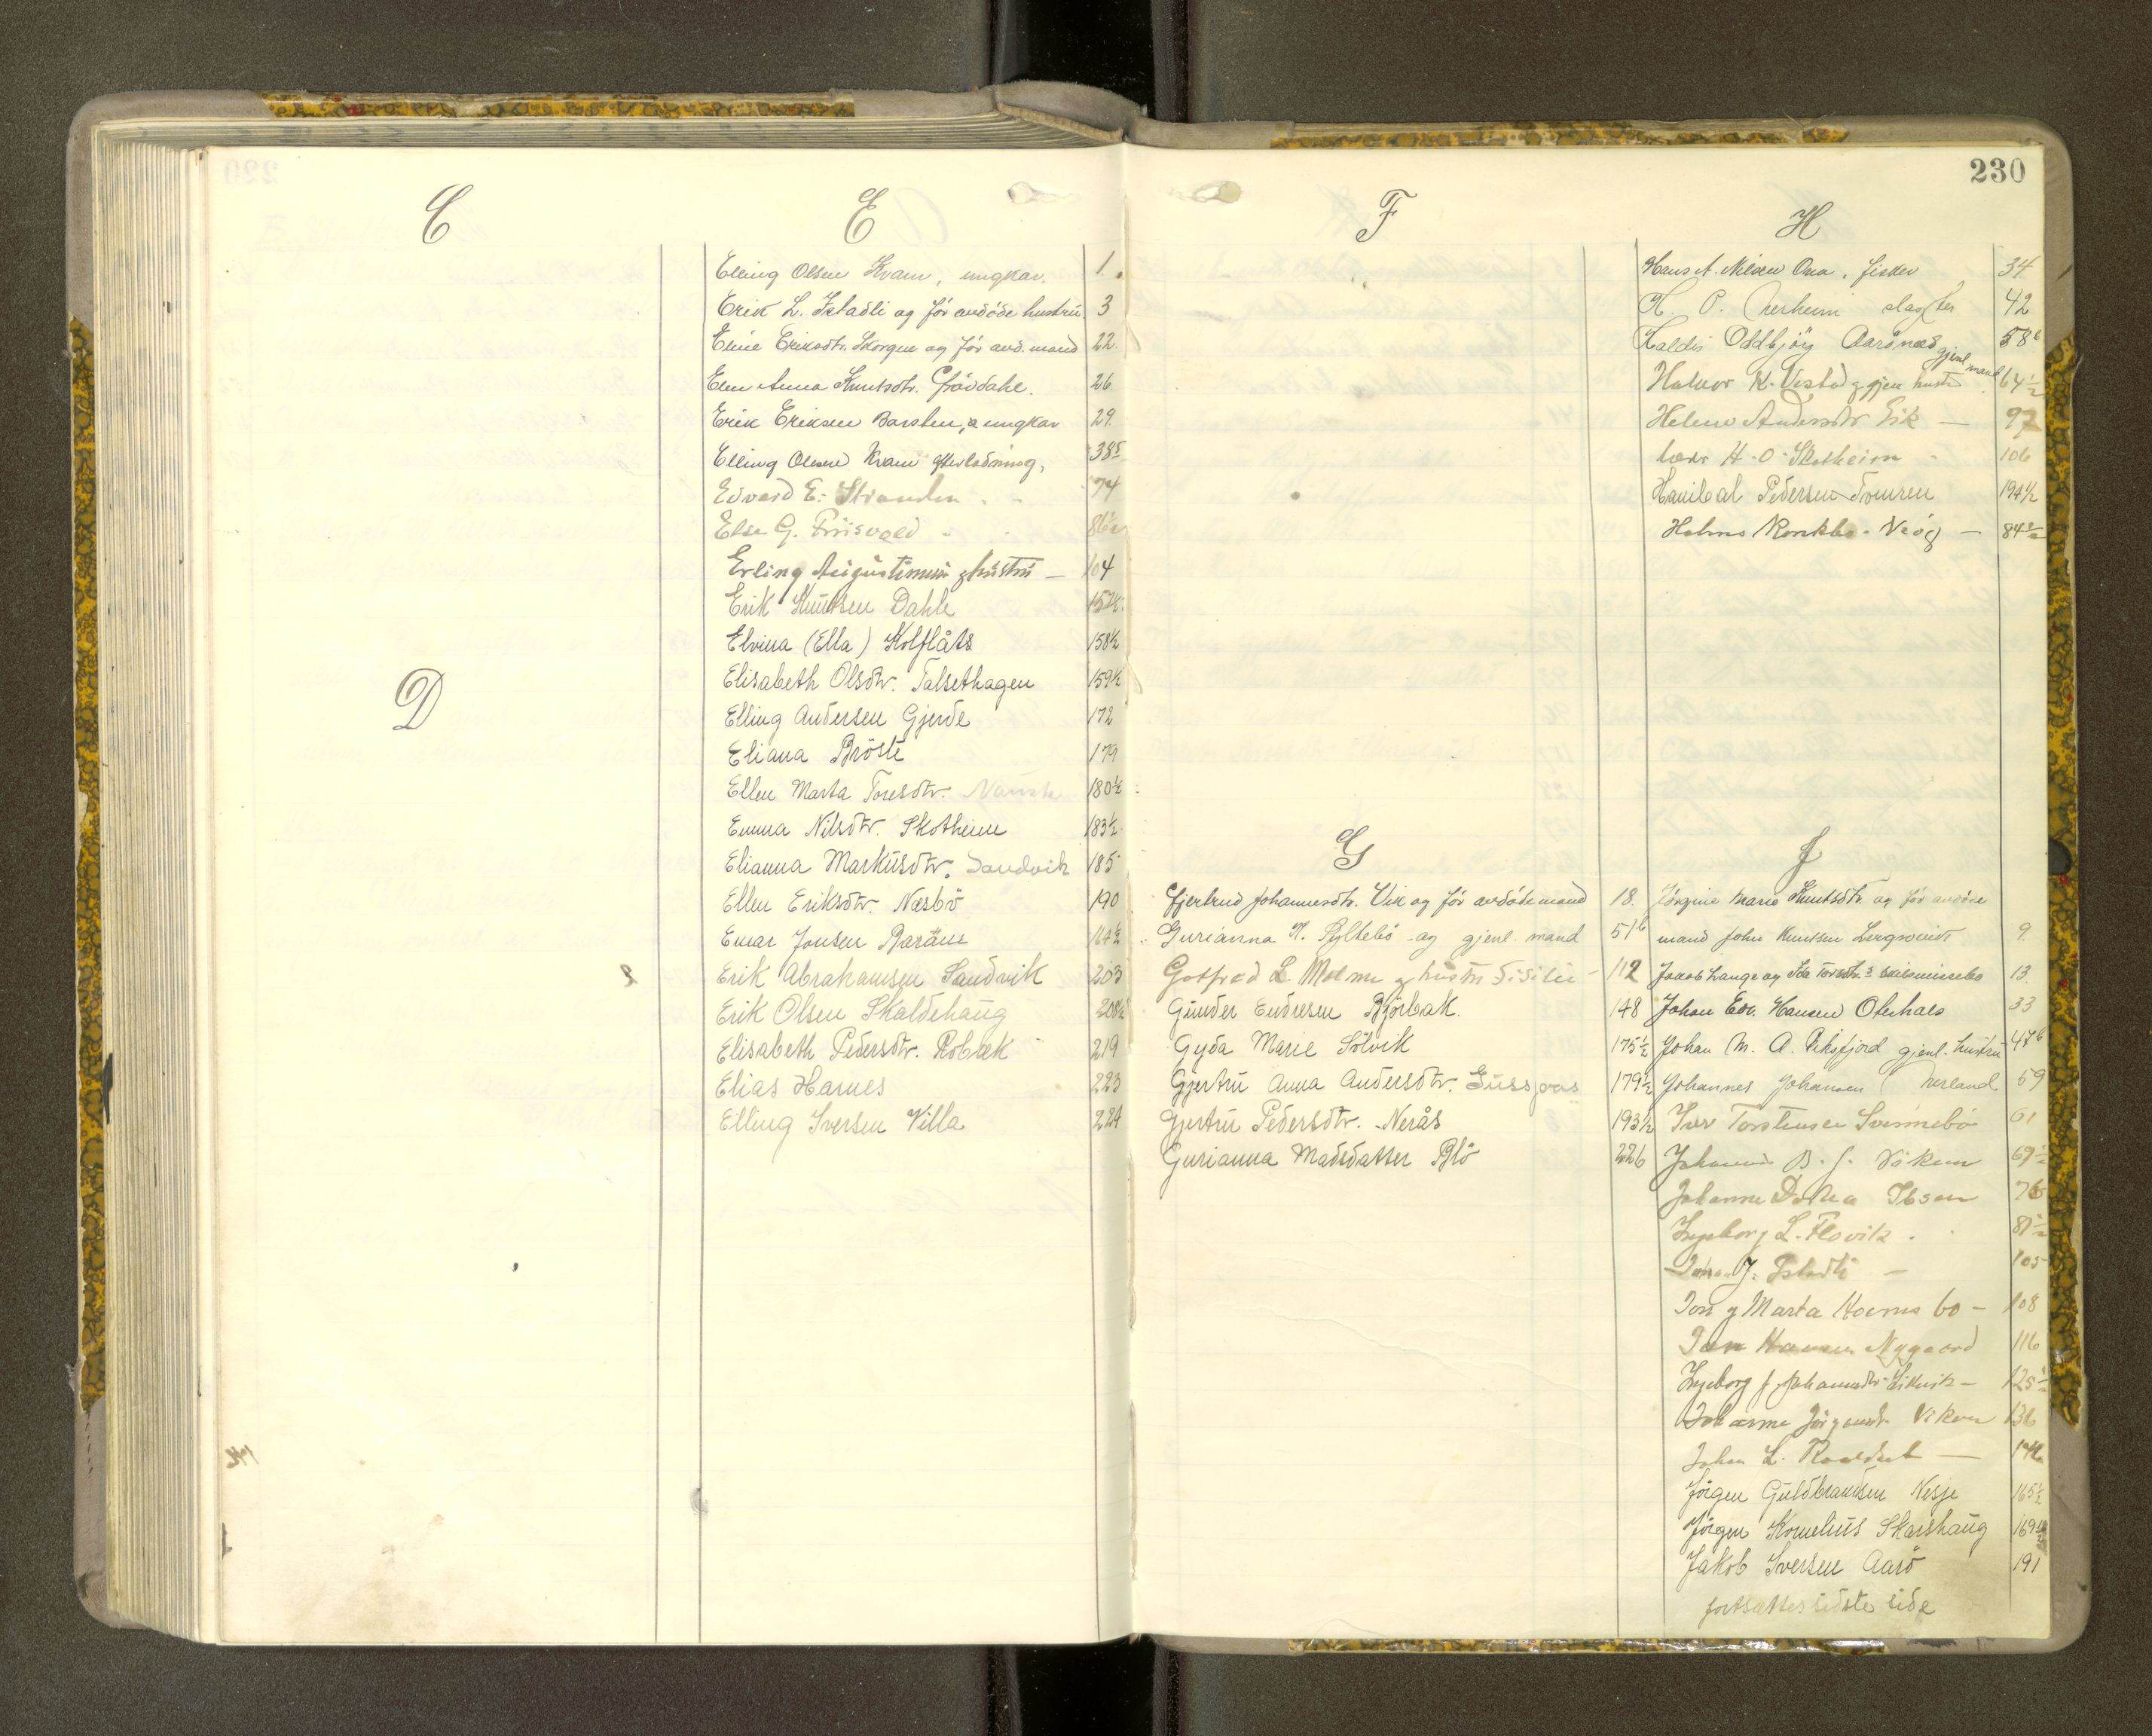 230
C
D
E
Elling Olsen Kvam, ungkar. 1.
Erik L. Istadli og før avdøde hustru 3
Eline Eriksdtr. Skorgen og før avd. mand 22.
Elen Anna Knutsdtr. Grövdahl. 26
Erik Eriksen Barsten, ungkar 29.
Elling Olsen Kvam efterlodning, 38
Edvard E. Stranden 74
Else G. Friisvold 86½
Erling Augustinius & hustru — 104
Erik Knutsen Dahle 152½
Elvina (Ella) Kolflåts 158½
Elisabeth Olsdtr. Talsethagen 159½
Elling Andersen Gjerde 172
Eliana Bröste 179
Ellen Marta Toresdtr. 180½
Emma Nilsdtr. Skotheim 183½
Elianna Markusdtr. Sandvik 185
Ellen Eriksdtr. Næsbö 190
Einar Jonsen
Erik Abrahamsen Sandvik 203
Erik Olsen Skaldehaug 208½
Elisabeth Pedersdtr. Robæk 219
Elias Harnes 223
Elling Iversen Villa 224
F
G
Gjertrud Johannesdtr. Vik og før avdöde mand 18.
Gurianna K. Syltebö og gjenl. mand 51 b
Gotfred L. Malme & hustru 112
Gunder Endresen Björbak. 148
Gyda Marie Sölvik 175½
Gjertru Anna Andersdtr. 179½
Gjertru Pedersdtr. Nerås 193½
Gurianna Madsdatter Blö 226
H
Hans A. Nilsen Ona, fisker 34
K. P. Nerheim slagter 42
Haldis Oddbjörg Aarönæs gjenl. mand 58 b
Halvor K. Vestad & gjen hustr 64½
Helene Andersdtr Eik — 97
H. O. Skotheim 106
Hanibal Pedersen 194½
84½
J
Jörgine Marie Knutsdtr. og før avdöde
mand John Knutsen 9
Jakob Lange og 13.
Johan Edv. Hansen Oterhals 33
Johan M. A. gjenl. hustru 47 b
Johannes Johansen Nerland 59
Iver Torstensen Svinnebö 61
B. J. 69½
Johanne Ibsen 76
Ingeborg L. Flovik. 81½
J. Istadli — 105
Jon & Marta 108
Hansen Nygaard 116
Ingeborg J 125½
Johanne Jörgensdtr Viken 136
Johan L. —
Jörgen Guldbrandsen Nesje 165½
Jörgen Kornelius Skarshaug 169½
Jakob Iversen Aarö 191
fortsættes sidste side